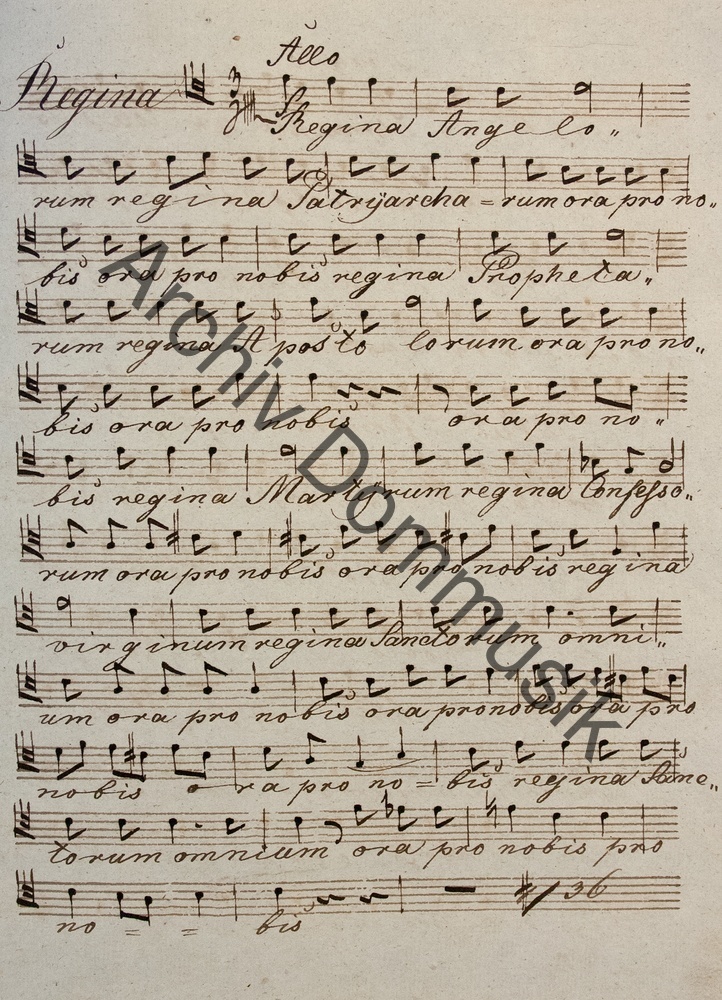 Allo
Regina
Regina Ange lo „
rum regina Patryarcha = rum ora pro no „
bis ora pro nobis regina Propheta „
rum regina A posto lorum ora pro no „
bis ora pro nobis ora pro no „
bis regina Martyrum regina Confesso „
rum ora pro nobis ora pro nobis regina
virginum regina Sanctorum omni „
um ora pro nobis ora pro nobis ora pro
nobis ora pro no = bis regina Sanc „
torum omnium ora pro nobis pro
36
no = = bis
Archiv Dommusik